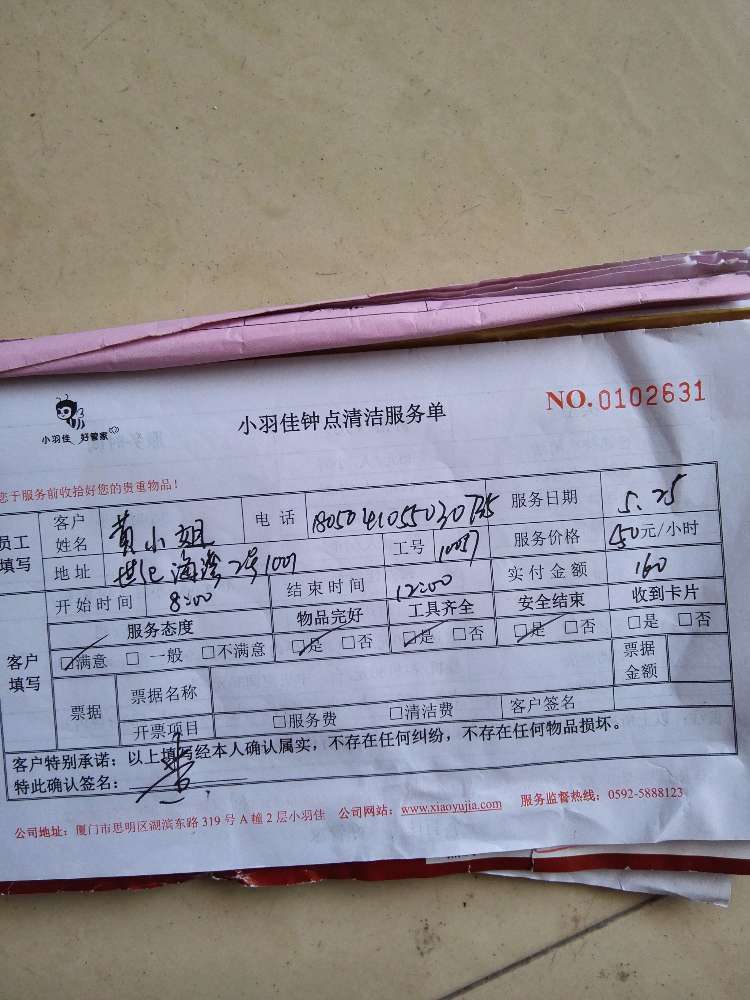 小羽佳 好管家
小羽佳钟点清洁服务单
NO.0102631
您于服务前收拾好您的贵重物品！
员工填写 客户姓名 黄小姐 电话 服务日期 5.25
地址 世纪海湾2号1001 工号 服务价格 元/小时
开始时间 8:00 结束时间 12:00 实付金额 160
客户填写 服务态度 物品完好 工具齐全 安全结束 收到卡片
☑满意 □一般 □不满意 ☑是 □否 ☑是 □否 ☑是 □否 □是 □否
票据 票据名称 票据金额
开票项目 □服务费 □清洁费 客户签名
客户特别承诺：以上填写经本人确认属实，不存在任何纠纷，不存在任何物品损坏。
特此确认签名：
公司地址：厦门市思明区湖滨东路319号A幢2层小羽佳 公司网站：www.xiaoyujia.com 服务监督热线：0592-5888123